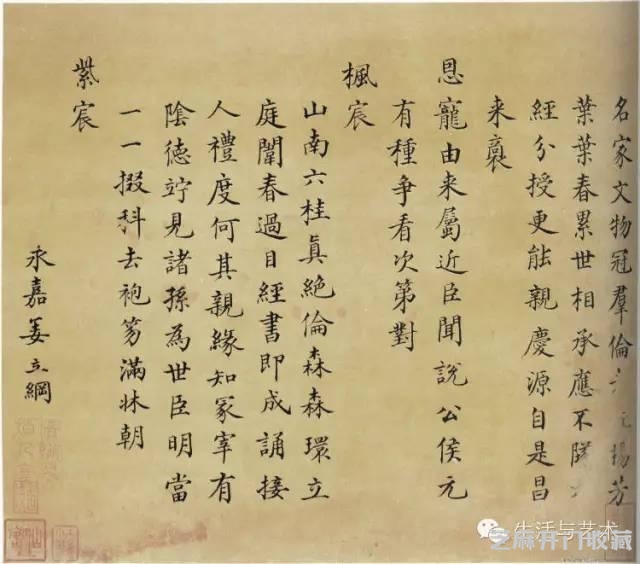 名家文物冠羣倫 揚芳
葉葉春累世相承應不
經分授更能親慶源自是昌
来
恩寵由来屬近臣聞說公侯元
有種争看次第對
楓宸
山南六桂眞絶倫森森環立
庭闈春過目經書即成誦接
人禮度何其親緣知冢宰有
陰德竚見諸孫為世臣明當
一一掇科去袍笏滿牀朝
紫宸
永嘉姜立綱
生活与艺术
芝麻开门收藏